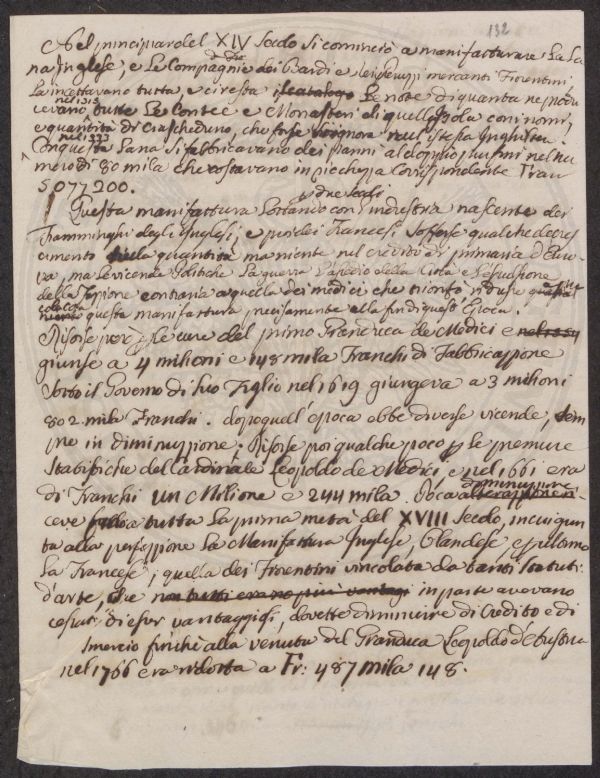 132
Nel principiar del XIV Secolo si cominciò a manifatturare La La
na Inglese, e Le Compagnie dei Bardi e dei Peruzzi mercanti Fiorentini
La incettavano tutta, e ci resta Le note di quanta ne produ
nel 1315
cevano, tutte Le Contee e Monasteri di quell'Isola con i nomi,
e quantità di ciascheduno, che forse s'ignora nell'istessa Inghilterra.
nel 1373
Con questa Lana si fabbricavano dei panni al doppio più fini nel nu
mero di 80 mila che costavano in pie corrispondente Fran
5077200.
due secoli
Questa manifattura Lottando con industria nascente dei
Fiamminghi degli Inglesi, e poi dei Francesi sofferse qualche decres
cimento nella quantità ma niente nel credito di primaria d'Euro
pa, ma Le vicende Politiche La guerra L'assedio della Città e L'espulsione
della Fazione contraria a quella dei Medici che trionfò ridusse quasi a
questa manifattura precisamente alla fin di quest'Epoca.
Risorse però p le cure del primo Granduca de Medici e nel 1554
giunse a 4 milioni e 148 mila Franchi di Fabbricazione
Sotto il Governo di suo Figlio nel 1619 giungeva a 3 milioni
802 mila Franchi. dopo quell'epoca ebbe diverse vicende, sem
pre in diminuzione. Risorse poi qualche poco p le premure
del Cardinale Leopoldo de Medici, e nel 1661 era
di Franchi un Milione e 244 mila. Poca alterazione ri
diminuzione
ceve fino a tutta La prima metà del XVIII Secolo, in cui giun
ta alla perfezione La Manifattura Inglese, Olandese e p ultimo
La Francese; quella dei Fiorentini vincolata da tanti Statuti
d'arte, che non tutti erano più vantaggi in parte avevano
cessato di esser vantaggiosi, dovette diminuire di credito e di
smercio finchè alla venuta del Granduca Leopoldo d'Austria
nel 1766 era ridotta a Fr: 487 mila 148.